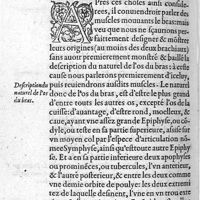 APres ces choses ainsi conside-
rees, il conuiendroit parler des
muscles mouuants le bras: mais
veu que nous ne sçaurions par-
faitement designer & monstrer
leurs origines (au moins des deux brachiaux)
sans auoir premierement monstré & baillé la
description du naturel de l'os du bras: à ceste
cause nous parlerons premierement d'iceluy,
Description du
naturel de l'os
du bras.
puis reuiendrons ausdits muscles. Le naturel
donc de l'os du bras, est d'estre le plus grand
d'entre touts les autres os, excepté l'os de la
cuisse: d'auantage, d'estre rond, moelleux, &
caue, ayant vne assez grande Epiphyse, ou co-
dyle, ou teste en sa partie superieure, assise sur
vn moyen col par l'espece d'articulation nô-
mee Symphyse, ainsi qu'estoit toute autre Epiphy-
se. Et a en sa partie inferieure deux apophyses
ou pronoisées, ou tubercules, l'vn anterieur,
& l'autre posterieur, entre les deux comme
vne demie orbite de poulye: les deux extremi-
tez de laquelle destinent, l'vne en vn trou ext